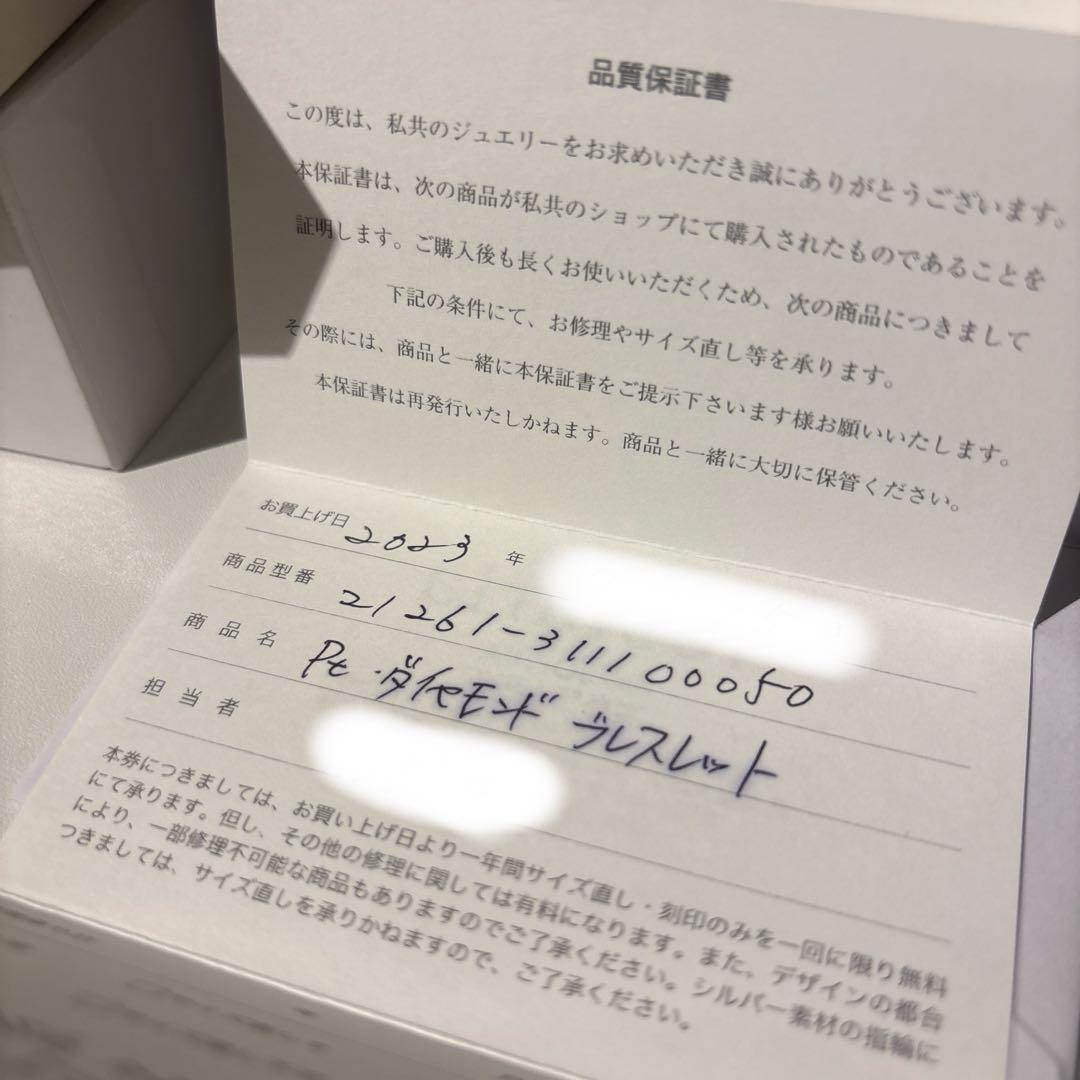 品質保証書
この度は、私共のジュエリーをお求めいただき誠にありがとうございます。
本保証書は、次の商品が私共のショップにて購入されたものであることを
証明します。ご購入後も長くお使いいただくため、次の商品につきまして
下記の条件にて、お修理やサイズ直し等を承ります。
その際には、商品と一緒に本保証書をご提示下さいます様お願いいたします。
本保証書は再発行いたしかねます。商品と一緒に大切に保管ください。
お買上げ日 2023 年
商品型番 21261-311100050
商品名 Pt ダイヤモンド ブレスレット
担当者
本券につきましては、お買い上げ日より一年間サイズ直し・刻印のみを一回に限り無料
にて承ります。但し、その他の修理に関しては有料になります。また、デザインの都合
により、一部修理不可能な商品もありますのでご了承ください。シルバー素材の指輪に
つきましては、サイズ直しを承りかねますので、ご了承ください。